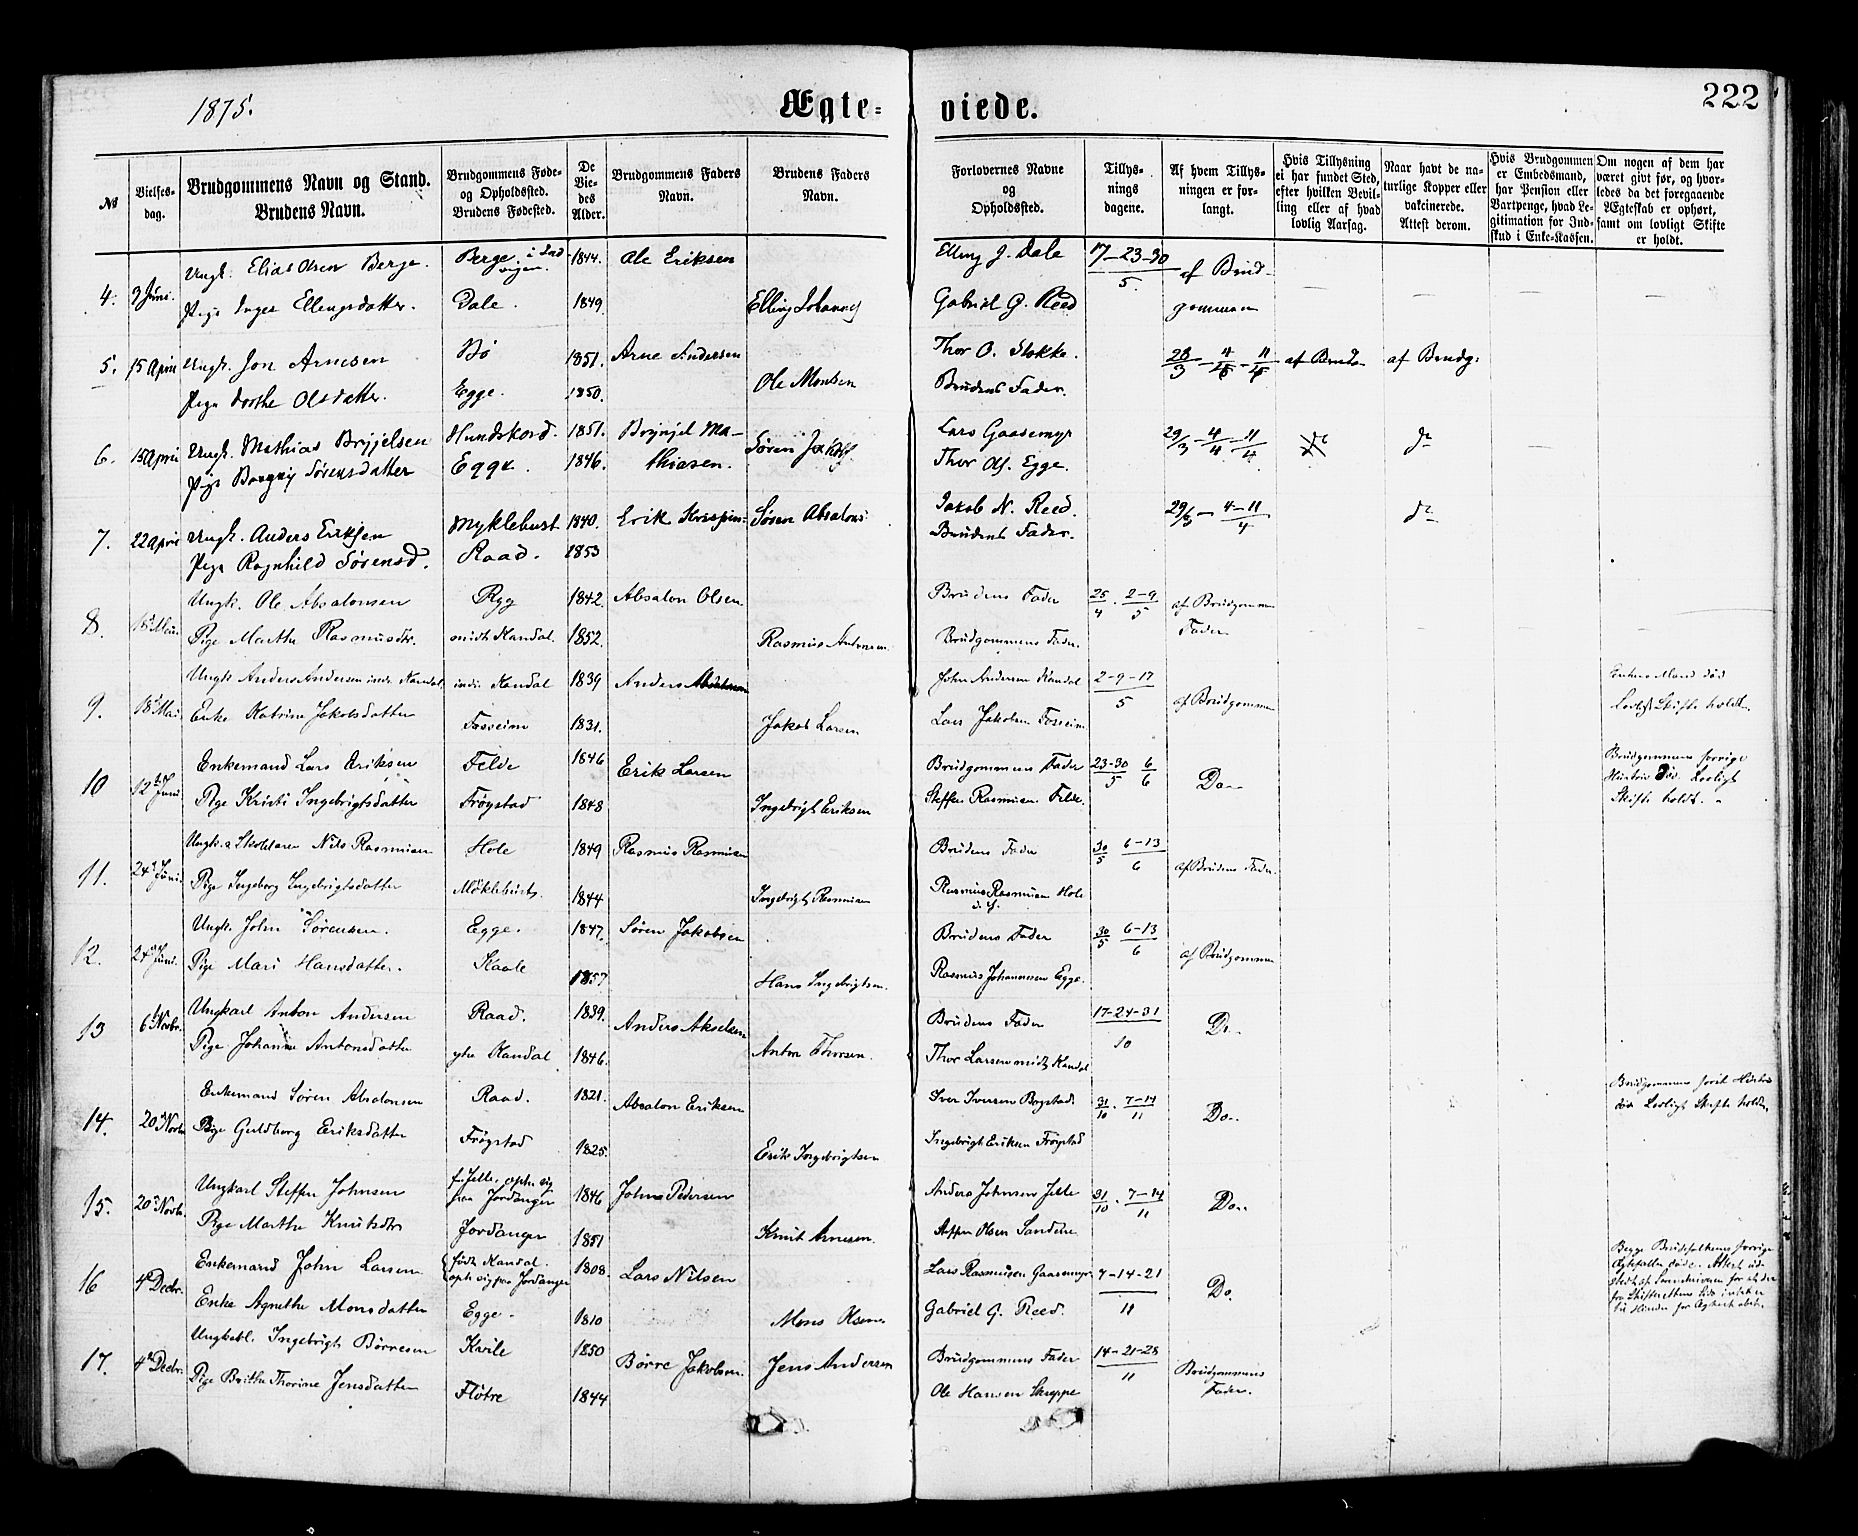 1875.
Ægte-
viede.
222
№
Vielses-
dag.
Brudgommens Navn og Stand.
Brudens Navn.
Brudgommens Føde-
og Opholdssted.
Brudens Fødested.
De
Vie-
des
Alder.
Brudgommens Faders
Navn.
Brudens Faders
Navn.
Forlovernes Navne
og
Opholdssted.
Tillys-
nings
dagene.
Af hvem Tillys-
ningen er for-
langt.
Hvis Tillysning
ei har fundet Sted,
efter hvilken Bevil-
ling eller af hvad
lovlig Aarsag.
Naar havt de na-
turlige Kopper eller
vakcinerede.
Attest derom.
Hvis Brudgommen
er Embedsmand,
har Pension eller
Vartpenge, hvad Le-
gitimation for Ind-
skud i Enke-Kassen.
Om nogen af dem har
været givt før, og hvor-
ledes da det foregaaende
Ægteskab er ophørt,
samt om lovligt Skifte
er holdt.
4. 3 Juni. Ungk. Elias Olsen Berge. Berge i 1844. Ole Eriksen Elling J. Dale 17-23-30/5 af Brud-
Pige Inger Ellingsdatter. Dale. 1849. Elling Gabriel G. Reed gommen
5. 15 April Ungk. Jon Arnesen Bø 1851. Arne Andersen Thor O. Stokke. 28/3 - 4/4 - 11/4 af Brudg:
Pige Dorthe Olsdatter. Egge. 1850. Ole Monsen Brudens Fader.
6. 15 April Ungk. Mathias Brynjelsen Hundskord. 1851. Brynjel Ma- Søren Jakobs Lars Gaasemyr 29/3 - 4/4 - 11/4 do do
Pige Borgny Sørensdatter Egge. 1846. thiasen. Thor Egge.
7. 22 April Ungk. Anders Eriksen Myklebust 1840. Erik Krispin- Søren Absalons: Jakob N. Reed. 29/3 - 4-11/4 do
Pige Ragnhild Sørensd. Raad. 1853 Brudens Fader.
8. 18 Mai Ungk. Ole Absalonsen Ryg 1842. Absalon Olsen Brudens Fader 25/4 . 2-9/5 af Brudgommen
Pige Marthe Rasmusdtr. midt Kandal. 1852. Rasmus Andersen Brudgommens Fader. Fader
9. 18 Mai Ungk. Anders Andersen indr. Kandal indr. Kandal 1839 Anders Absalonsen John Andersen Kandal 2-9-17/5 af Brudgommen Enkens Mand død
Enke Katrine Jakobsdatter Fosseim 1831. Jakob Larsen Lars Jakobsen Fosseim Lovligt Skifte holdt.
10 12 Juni. Enkemand Lars Eriksen Felde 1846 Erik Larsen Brudgommens Fader 23-30/5 6/6 Do.. Brudgommens forrige
Pige Kristi Ingebrigtsdatter Frøystad 1848 Ingebrigt Eriksen Steffen Rasmusen Felde. Hustru død. Lovligt
Skifte holdt.
11. 24 Juni. Ungk. Nils Rasmusen Hole 1849 Rasmus Rasmusen Brudens Fader 30/5 6-13/6 af Brudens Fader.
Pige Ingeborg Ingebrigtsdatter Myklebust. 1844 Ingebrigt Rasmusen Rasmus Rasmusen Hole
12. 24 Juni. Ungk. John Sørensen. Egge. 1847. Søren Jakobsen Brudens Fader 30/5 6-13/6 af Brudgommen
Pige Mari Hansdatter. 1857 Hans Ingebrigtsen. Rasmus Johannesen Egge.
13 6 Novbr. Ungkarl Anton Andersen Raad. 1839. Anders Akselsen Brudens Fader 17-24-31/10 Do..
Pige Johanne Antonsdatter ytre Kandal 1846. Anton Thorsen. Thor Larsen midt Kandal
14. 20 Novbr. Enkemand Søren Absalonsen Raad. 1821. Absalon Eriksen Iver Iversen Bogstad. 31/10 . 7-14/11 Do.. Brudgommens forrige Hustru
Pige Guldborg Eriksdatter Frøystad 1825. Erik Ingebrigtsen Ingebrigt Eriksen Frøystad død Lovligt Skifte holdt.
15. 20 Novbr. Ungkarl Steffen Johnsen 1846 John Pedersen Anders Johnsen 31/10 . 7-14/11 Do..
paa Jordanger
Pige Marthe Knutsdtr Jordanger 1851 Knut Arnesen. Steffen Olsen
16 4 Decbr. Enkemand John Larsen født Kandal. 1808. Lars Nilsen Lars Rasmussen Gaasemyr 7-14-21/11 Do.
oph. sig paa Jordanger
Enke Agnethe Monsdatter Egge. 1810 Mons Olsen Gabriel G. Reed.
17. 4 Decbr. Ungkarl. Ingebrigt Børresen Kvile 1850 Børre Jakobsen. Jens Andersen Brudgommens Fader 14-21-28/11 Brudgommens
Pige Brithe Thorine Jensdatter Fløtre 1844 Ole Hansen Skreppe Fader.